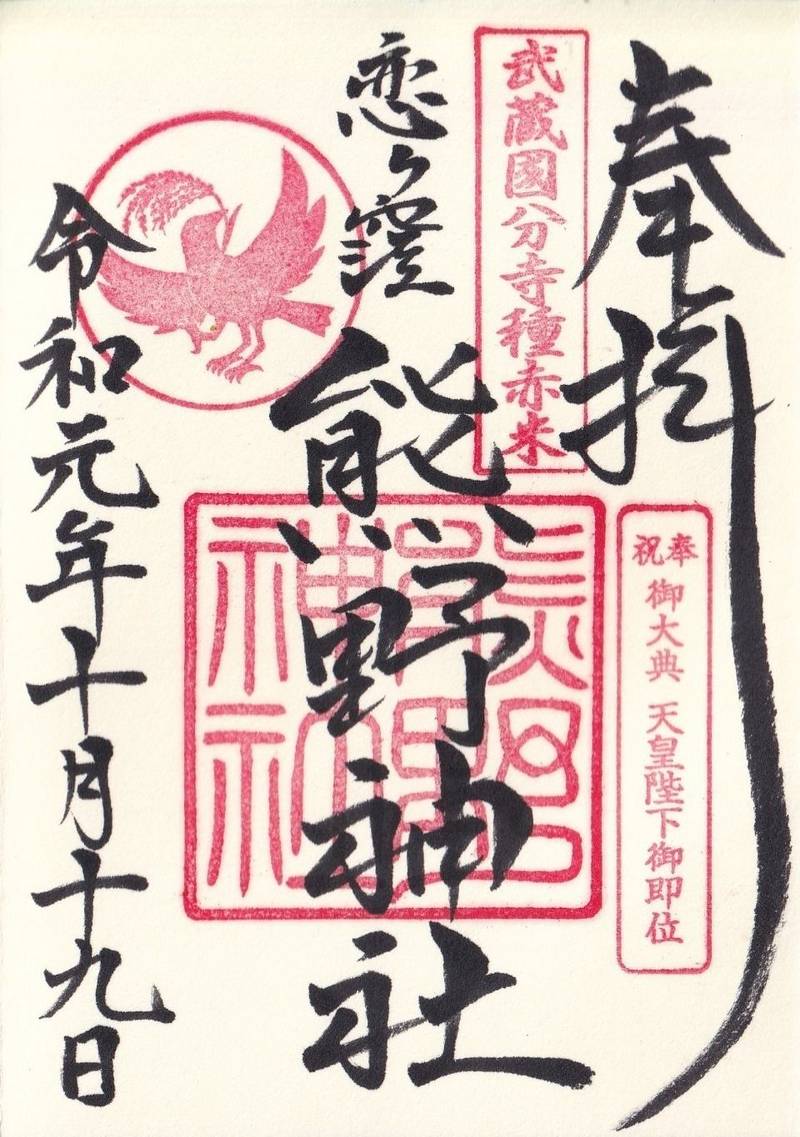 奉拝
武蔵国分寺種赤米
奉祝 御大典 天皇陛下御即位
恋ヶ窪
熊野神社
熊野神社
令和元年十月十九日